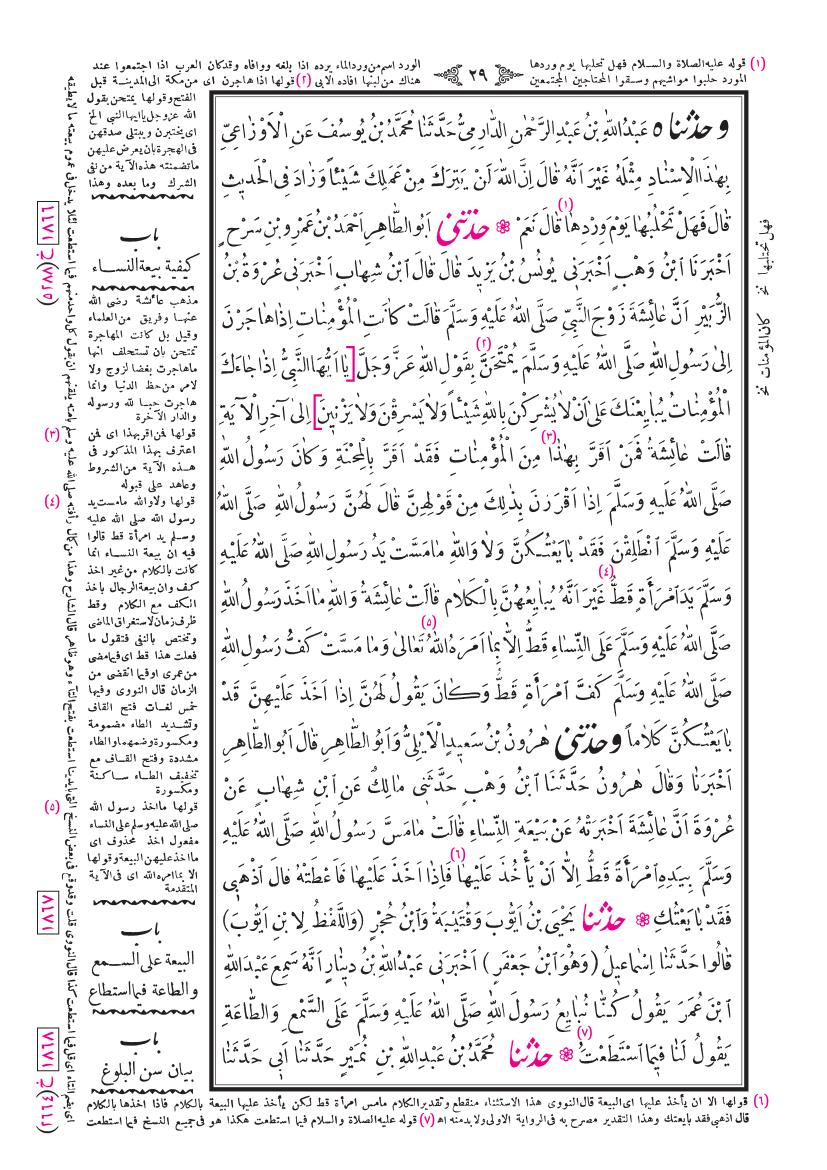 (١) قوله عليه الصلاة والسلام فهل تحلبها يوم وردها
المورد حلبوا مواشيهم وسقوا المحتاجين المجتمعين
٢٩
الورد اسم من ورد الماء يرده اذا بلغه ووافاه وقدكان العرب اذا اجتمعوا عند
هناك من لبنها افاده الابي (٢) قولها اذا هاجرن اى من مكة الى المدينة قبل
وَحَدَّثَنَا ٥ عَبْدُ اللهِ بْنُ عَبْدِ الرَّحْمٰنِ الدَّارِمِىُّ حَدَّثَنَا مُحَمَّدُ بْنُ يُوسُفَ عَنِ الْاَوْزَاعِىِّ
بِهٰذَا الْاِسْنَادِ مِثْلَهُ غَيْرَ اَنَّهُ قَالَ اِنَّ اللهَ لَنْ يَتِرَكَ مِنْ عَمَلِكَ شَيْئاً وَزَادَ فِى الْحَدِيثِ
قَالَ فَهَلْ تَحْلُبُهَا يَوْمَ وِرْدِهَا (١) قَالَ نَعَمْ ۞ حَدَّثَنِى اَبُو الطَّاهِرِ اَحْمَدُ بْنُ عَمْرِو بْنِ سَرْحٍ
اَخْبَرَنَا ابْنُ وَهْبٍ اَخْبَرَنِى يُونُسُ بْنُ يَزِيدَ قَالَ قَالَ ابْنُ شِهَابٍ اَخْبَرَنِى عُرْوَةُ بْنُ
الزُّبَيْرِ اَنَّ عَائِشَةَ زَوْجَ النَّبِىِّ صَلَّى اللهُ عَلَيْهِ وَسَلَّمَ قَالَتْ كَانَتِ الْمُؤْمِنَاتُ اِذَا هَاجَرْنَ
اِلٰى رَسُولِ اللهِ صَلَّى اللهُ عَلَيْهِ وَسَلَّمَ يُمْتَحَنَّ (٢) بِقَوْلِ اللهِ عَزَّ وَجَلَّ [يَا اَيُّهَا النَّبِىُّ اِذَا جَاءَكَ
الْمُؤْمِنَاتُ يُبَايِعْنَكَ عَلٰى اَنْ لَا يُشْرِكْنَ بِاللهِ شَيْئاً وَلَا يَسْرِقْنَ وَلَا يَزْنِينَ] اِلٰى آخِرِ الْآيَةِ
قَالَتْ عَائِشَةُ فَمَنْ اَقَرَّ بِهٰذَا (٣) مِنَ الْمُؤْمِنَاتِ فَقَدْ اَقَرَّ بِالْمِحْنَةِ وَكَانَ رَسُولُ اللهِ
صَلَّى اللهُ عَلَيْهِ وَسَلَّمَ اِذَا اَقْرَرْنَ بِذٰلِكَ مِنْ قَوْلِهِنَّ قَالَ لَهُنَّ رَسُولُ اللهِ صَلَّى اللهُ
عَلَيْهِ وَسَلَّمَ انْطَلِقْنَ فَقَدْ بَايَعْتُكُنَّ وَلَا وَاللهِ مَا مَسَّتْ يَدُ رَسُولِ اللهِ صَلَّى اللهُ عَلَيْهِ
وَسَلَّمَ يَدَ امْرَأَةٍ قَطُّ (٤) غَيْرَ اَنَّهُ يُبَايِعُهُنَّ بِالْكَلَامِ قَالَتْ عَائِشَةُ وَاللهِ مَا اَخَذَ رَسُولُ اللهِ
صَلَّى اللهُ عَلَيْهِ وَسَلَّمَ عَلَى النِّسَاءِ قَطُّ اِلَّا بِمَا اَمَرَهُ اللهُ (٥) تَعَالٰى وَمَا مَسَّتْ كَفُّ رَسُولِ اللهِ
صَلَّى اللهُ عَلَيْهِ وَسَلَّمَ كَفَّ امْرَأَةٍ قَطُّ وَكَانَ يَقُولُ لَهُنَّ اِذَا اَخَذَ عَلَيْهِنَّ قَدْ
بَايَعْتُكُنَّ كَلَاماً وَحَدَّثَنِى هٰرُونُ بْنُ سَعِيدٍ الْاَيْلِىُّ وَاَبُو الطَّاهِرِ قَالَ اَبُو الطَّاهِرِ
اَخْبَرَنَا وَقَالَ هٰرُونُ حَدَّثَنَا ابْنُ وَهْبٍ حَدَّثَنِى مَالِكٌ عَنِ ابْنِ شِهَابٍ عَنْ
عُرْوَةَ اَنَّ عَائِشَةَ اَخْبَرَتْهُ عَنْ بَيْعَةِ النِّسَاءِ قَالَتْ مَا مَسَّ رَسُولُ اللهِ صَلَّى اللهُ عَلَيْهِ
وَسَلَّمَ بِيَدِهِ امْرَأَةً قَطُّ اِلَّا اَنْ يَأْخُذَ عَلَيْهَا (٦) فَاِذَا اَخَذَ عَلَيْهَا فَاَعْطَتْهُ قَالَ اذْهَبِى
فَقَدْ بَايَعْتُكِ ۞ حَدَّثَنَا يَحْيَى بْنُ اَيُّوبَ وَقُتَيْبَةُ وَابْنُ حُجْرٍ (وَاللَّفْظُ لِابْنِ اَيُّوبَ)
قَالُوا حَدَّثَنَا اِسْمَاعِيلُ (وَهُوَ ابْنُ جَعْفَرٍ) اَخْبَرَنِى عَبْدُ اللهِ بْنُ دِينَارٍ اَنَّهُ سَمِعَ عَبْدَ اللهِ
ابْنَ عُمَرَ يَقُولُ كُنَّا نُبَايِعُ رَسُولَ اللهِ صَلَّى اللهُ عَلَيْهِ وَسَلَّمَ عَلَى السَّمْعِ وَالطَّاعَةِ
يَقُولُ لَنَا فِيمَا اسْتَطَعْتَ (٧) ۞ حَدَّثَنَا مُحَمَّدُ بْنُ عَبْدِ اللهِ بْنِ نُمَيْرٍ حَدَّثَنَا اَبِى حَدَّثَنَا
فهل تحتلبها نخ
كان المؤمنات نخ
الفتح وقولها يمتحن بقول
الله عز وجل يا ايها النبى الخ
اى يختبرن ويبتلى صدقهن
فى الهجرة بان يعرض عليهن
ما تضمنته هذه الآية من نفى
الشرك وما بعده وهذا
باب
كيفية بيعة النساء
مذهب عائشة رضى الله
عنها وفريق من العلماء
وقيل بل كانت المهاجرة
تمتحن بان تستحلف انها
ما هاجرت بغضا لزوج ولا
لامر من حظ الدنيا وانما
هاجرت حبا لله ورسوله
والدار الآخرة
(٣) قولها فمن اقر بهذا اى فمن
اعترف بهذا المذكور فى
هذه الآية من الشروط
وعاهد على قبوله
(٤) قولها ولا والله ما مست يد
رسول الله صلى الله عليه
وسلم يد امرأة قط قالوا
فيه ان بيعة النساء انما
كانت بالكلام من غير اخذ
كف وان بيعة الرجال باخذ
الكف مع الكلام وقط
ظرف زمان لاستغراق الماضى
وتختص بالنفى فتقول ما
فعلت هذا قط اى فيما مضى
من عمرى او فيما انقضى من
الزمان قال النووى وفيها
خمس لغات فتح القاف
وتشديد الطاء مضمومة
ومكسورة وضمهما والطاء
مشددة وفتح القاف مع
تخفيف الطاء ساكنة
ومكسورة
(٥) قولها ما اخذ رسول الله
صلى الله عليه وسلم على النساء
مفعول اخذ محذوف اى
ما اخذ عليهن البيعة وقولها
الا بما امره الله اى فى الآية
المتقدمة
باب
البيعة على السمع
والطاعة فيما استطاع
باب
بيان سن البلوغ
(٦) قولها الا ان يأخذ عليها اى البيعة قال النووى هذا الاستثناء منقطع وتقدير الكلام ما مس امرأة قط لكن يأخذ عليها البيعة بالكلام فاذا اخذها بالكلام
قال اذهبى فقد بايعتك وهذا التقدير مصرح به فى الرواية الاولى ولا بد منه اه (٧) قوله عليه الصلاة والسلام فيما استطعت هكذا هو فى جميع النسخ فيما استطعت